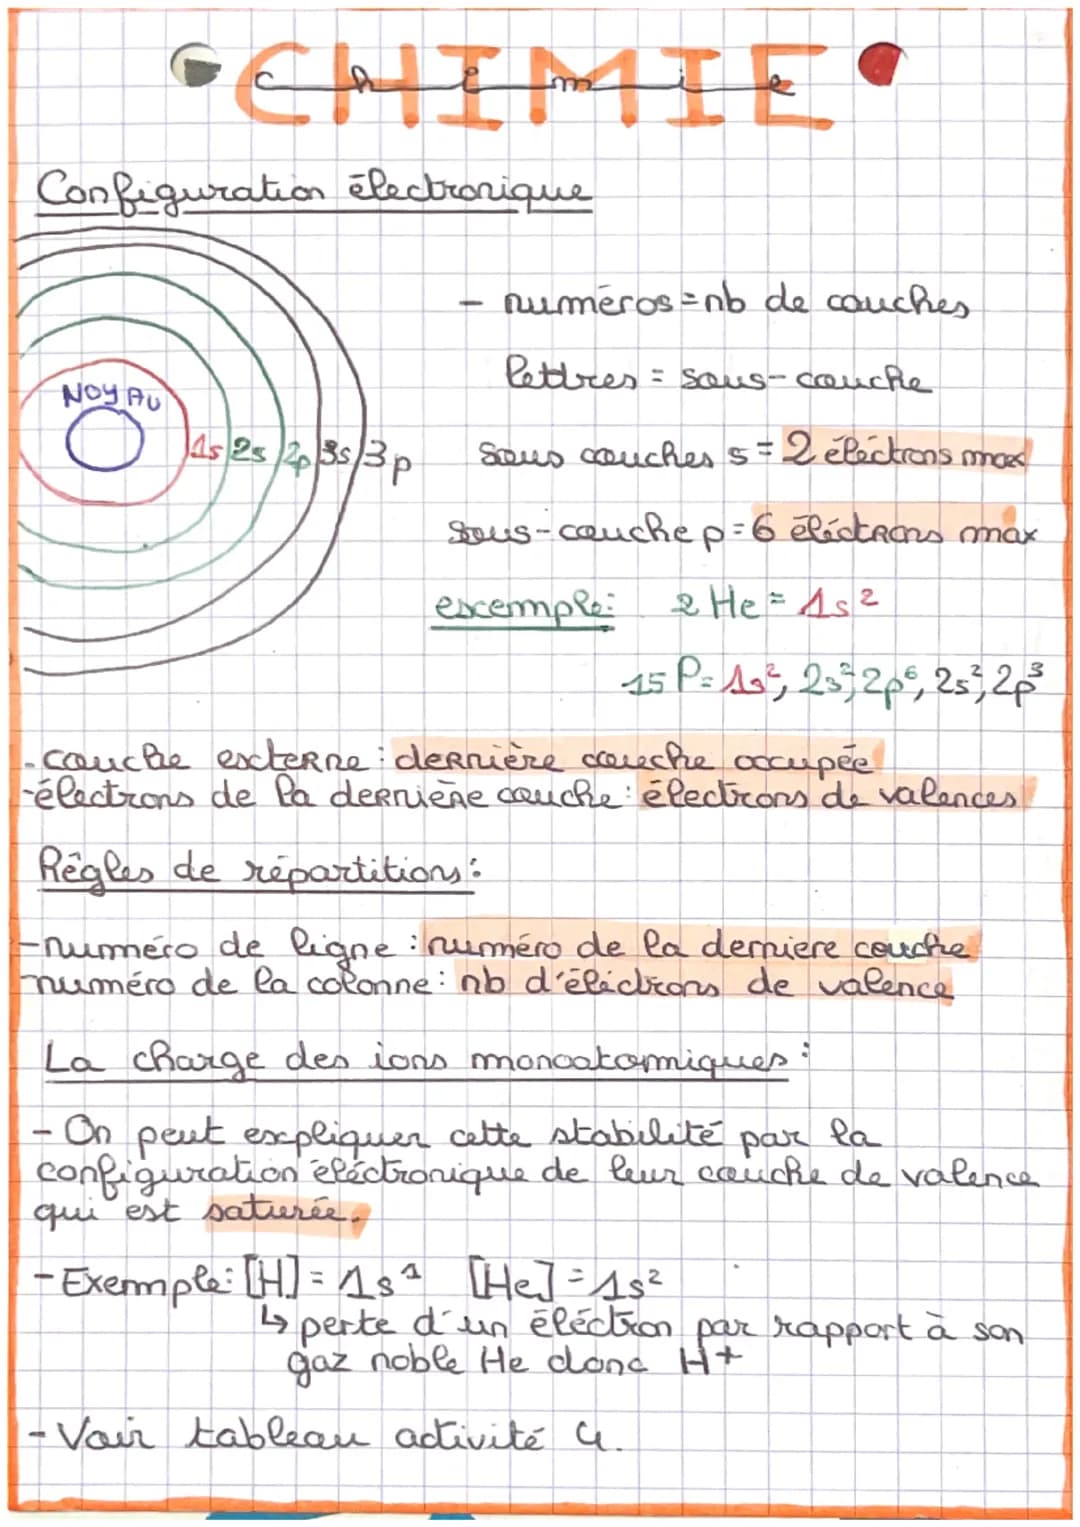 CHIMIE
chimie
Configuration électronique
NOYAU
1s 2s 2p 3s 3p
- numéros = nb de couches
lettres = sous-couche
sous couches s = 2 éléctrons max
sous-couche p = 6 éléctrons max
excemple: 2 He = 1s²
15 P = 1s², 2s², 2p⁶, 2s², 2p³
- couche externe : dernière couche occupée
- électrons de la dernière couche : électrons de valences
Règles de répartitions :
- numéro de ligne : numéro de la derniere couche
numéro de la colonne : nb d'éléctrons de valence
La charge des ions monoatomiques :
- On peut expliquer cette stabilité par la
configuration éléctronique de leur couche de valence
qui est saturée.
- Exemple : [H] = 1s¹ [He] = 1s²
↳ perte d'un éléctron par rapport à son
gaz noble He donc H+
- Voir tableau activité 4.